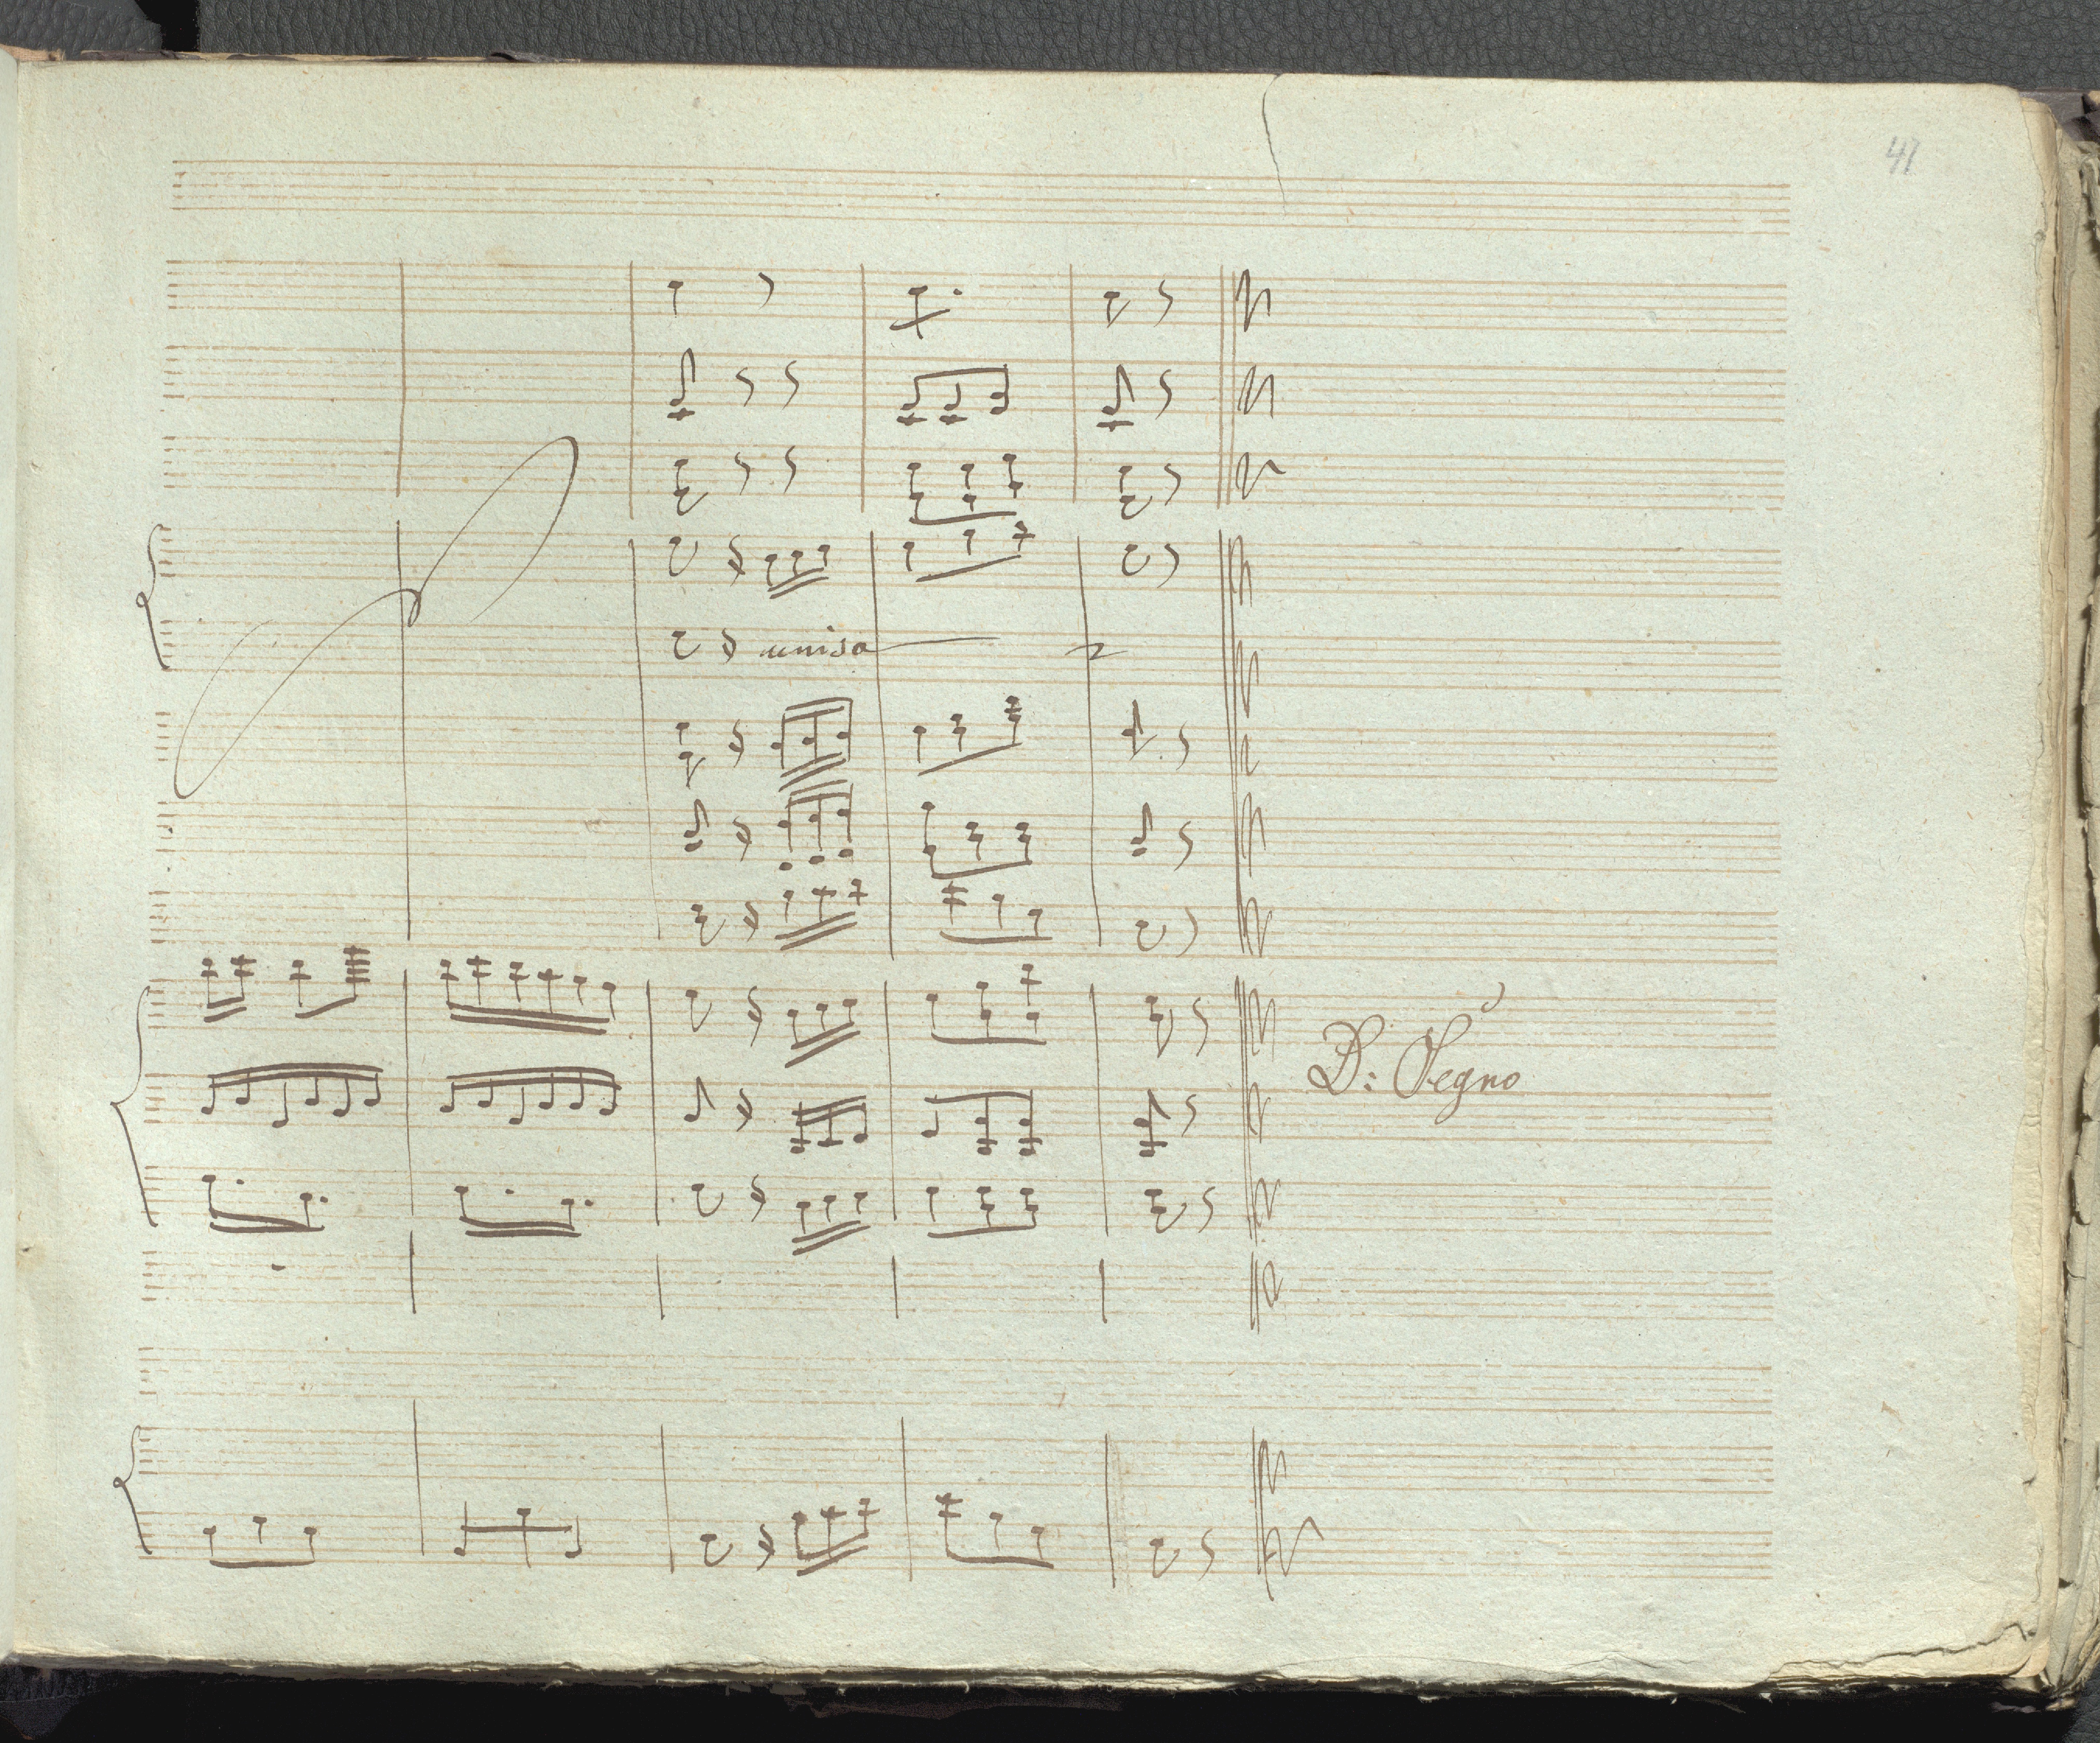 41
uniso
D: Segno